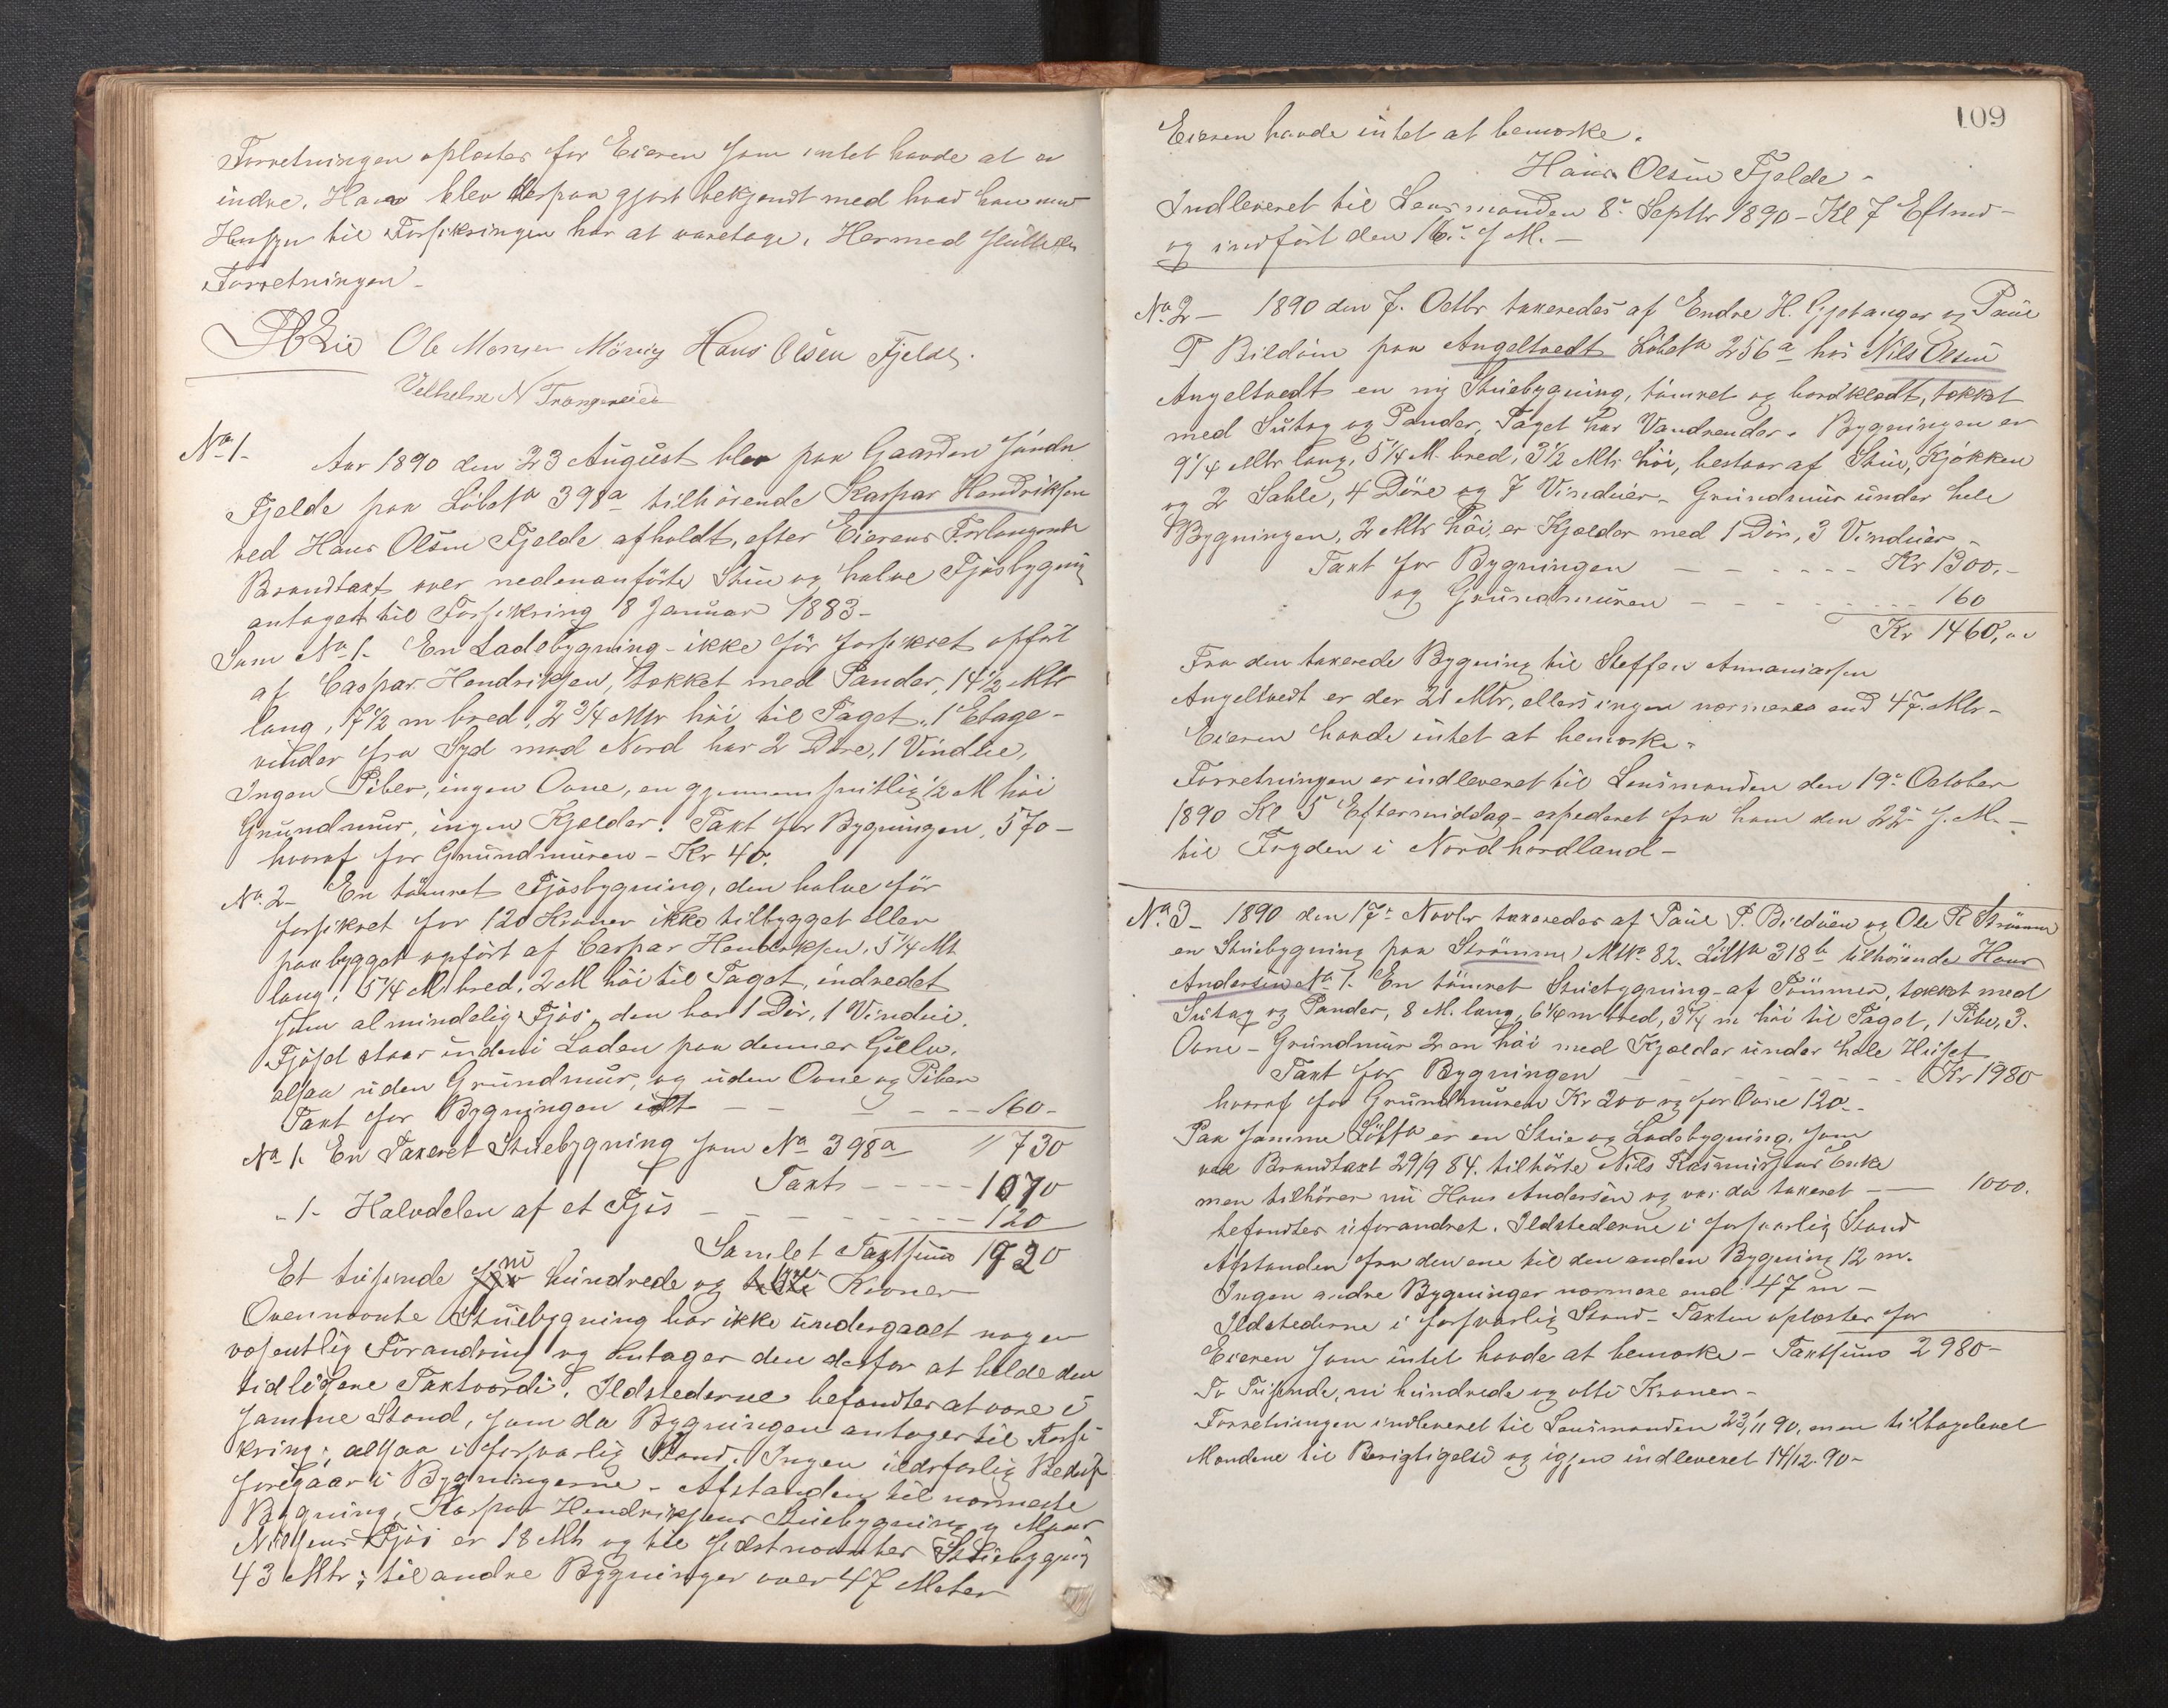 Forretningen oplæstes for Eieren som intet havde at er
indre. Han blev derpaa gjort bekjendt med hvad han med
Hensyn til Forsikringen har at varetage. Hermed sluttedes
Forretningen –
Ole Monsen Hans Olsen Fjelde.
Vilhelm N
No 1. Aar 1890 den 23 August blev paa Gaarden Søndre
Fjelde paa Löbe No 398a tilhörende Kaspar Hendriksen
ved Hans Olsen Fjelde afholdt, efter Eierens Forlangende
Brandtaxt over nedenanförte Stue og halve Fjösbygning
antaget til Forsikring 8 Januar 1883 –
Som No 1. En Ladebygning – ikke för forsikret opfört
af Caspar Hendriksen, tækket med Pander, 14½ Mtr
lang, 7½ m bred, 2¾ Mtr höi til Taget, 1 Etage –
vender fra Syd mod Nord har 2 Döre, 1 Vindue,
Ingen Piber, ingen Ovne, en gjennemsnitlig ½ M höi
Grundmur, ingen Kjælder. Taxt for Bygningen, 570 –
hvoraf for Grundmuren – Kr 40.
No 2 – En tömret Fjösbygning, den halve för
forsikret for 120 Kroner ikke tilbygget eller
paabygget opfört af Caspar Hendriksen, 5¼ Mt
lang, 5¼ M bred, 2 M höi til Taget, indredet
som almindelig Fjös, den har 1 Dör, 1 Vindue.
Fjöset staar inden i Laden paa dennes Gulv.
altsaa uden Grundmur, og uden Ovne og Piber
Taxt for Bygningen – – – – – 160 –
No 1. En Taxeret Stuebygning som No 398a " 730
Taxt – – – – 1070
– 1 – Halvdelen af et Fjös – – – – – – 120
Samlet Taxtsum 1920
Et tusinde ni hundrede og tyve Kroner
Ovennævnte Stuebygning har ikke undergaaet nogen
væsentlig Forandring og antages den derfor at holde den
tidligere Taxtværdi. Ildstederne befandtes at være i
samme Stand, som da Bygningen antoges til Forsi-
kring, altsaa i forsvarlig Stand. Ingen ildsfarlig Bedrift
foregaar i Bygningerne – Afstanden til nærmeste
Bygning, Kaspar Hendriksens Stuebygning og Mons
Nilsens Fjös er 18 Mtr og til sidstnævntes Stuebygning
43 Mtr; til andre Bygninger over 47 Meter
109
Eieren havde intet at bemærke.
Hans Olsen Fjelde –
Indleveret til Lensmanden 8de Septbr 1890 – Kl 7 Eftmd –
og indfört den 16de s. M. –
No 2 – 1890 den 7. Octbr taxeredes af Endre H. Gjetanger og Paul
P Bildöen paa Angeltvedt Löbe No 256a hos Nils Olsen
Angeltvedt en ny Stuebygning, tömret og bordklædt, tækket
med Sutag og Pander, Taget har Vandrender. Bygningen er
9¼ Mtr lang, 5¼ M. bred, 3½ Mtr höi, bestaar af Stue, Kjökken
og 2 Sahle, 4 Döre og 7 Vinduer – Grundmur under hele
Bygningen, 2 Mtr höi, er Kjælder med 1 Dör, 3 Vinduer –
Taxt for Bygningen – – – – – – Kr 1300. –
og Grundmuren – – – – – – 160
Kr 1460,00
Fra den taxerede Bygning til Steffen Annaniassen
Angeltvedt er der 21 Mtr, ellers ingen nærmere end 47. Mtr –
Eieren havde intet at bemærke –
Forretningen er indleveret til Lensmanden den 19de October
1890 Kl 5 Eftermiddag – expederet fra ham den 22de s. M. –
til Fogden i Nordhordland –
No 3 – 1890 den 17de Novbr taxeredes af Paul P. Bildöen og Ole R Strömme
en Stuebygning paa Strömme, Mtr. 82. Löbe No 318b tilhörende Hans
Andersen No 1. En tömret Stuebygning – af Tömmer, tækket med
Sutag og Pander, 8 M. lang, 6¼ m bred, 3¾ m höi til Taget, 1 Pibe, 3.
Ovne – Grundmur 2 m höi med Kjælder under hele Huset
Taxt for Bygningen – – – – – – – Kr 1980
hvoraf for Grundmuren Kr 200 og for Ovne 120 –
Paa samme Löbe No er en Stue og Ladebygning, som
ved Brandtaxt 29/9 84. tilhörte Nils Rasmussens Enke
men tilhörer nu Hans Andersen og var da taxeret – – 1000.
befandtes uforandret. Ildstederne i forsvarlig Stand
Afstanden fra den ene til den anden Bygning 12 m.
Ingen andre Bygninger nærmere end 47 m –
Ildstederne i forsvarlig Stand – Taxten oplæstes for
Eieren som intet havde at bemærke – Taxtsum 2980 –
To Tusende, ni hundrede og otti Kroner –
Forretningen indleveret til Lensmanden 23/11 90, men tilbageleveret
Mændene til Berigtigelse og igjen indleveret 14/12. 90 –